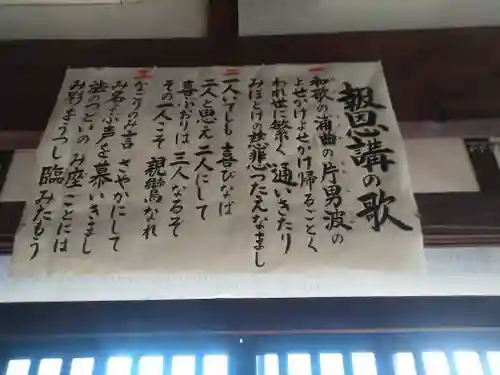 報恩講の歌
一
和歌の浦曲の片男波の
よせかけよせかけ帰るごとく
われ世に繁く通いきたり
みほとけの慈悲つたえなまし
二
一人いても 喜びなば
二人と思え 二人にして
喜ぶおりは 三人なるぞ
その一人こそ 親鸞なれ
三
なごりのみ言 さやかにして
み名よぶ声を慕いきまし
法のつどいの み座ことには
み影をうつし臨みたもう